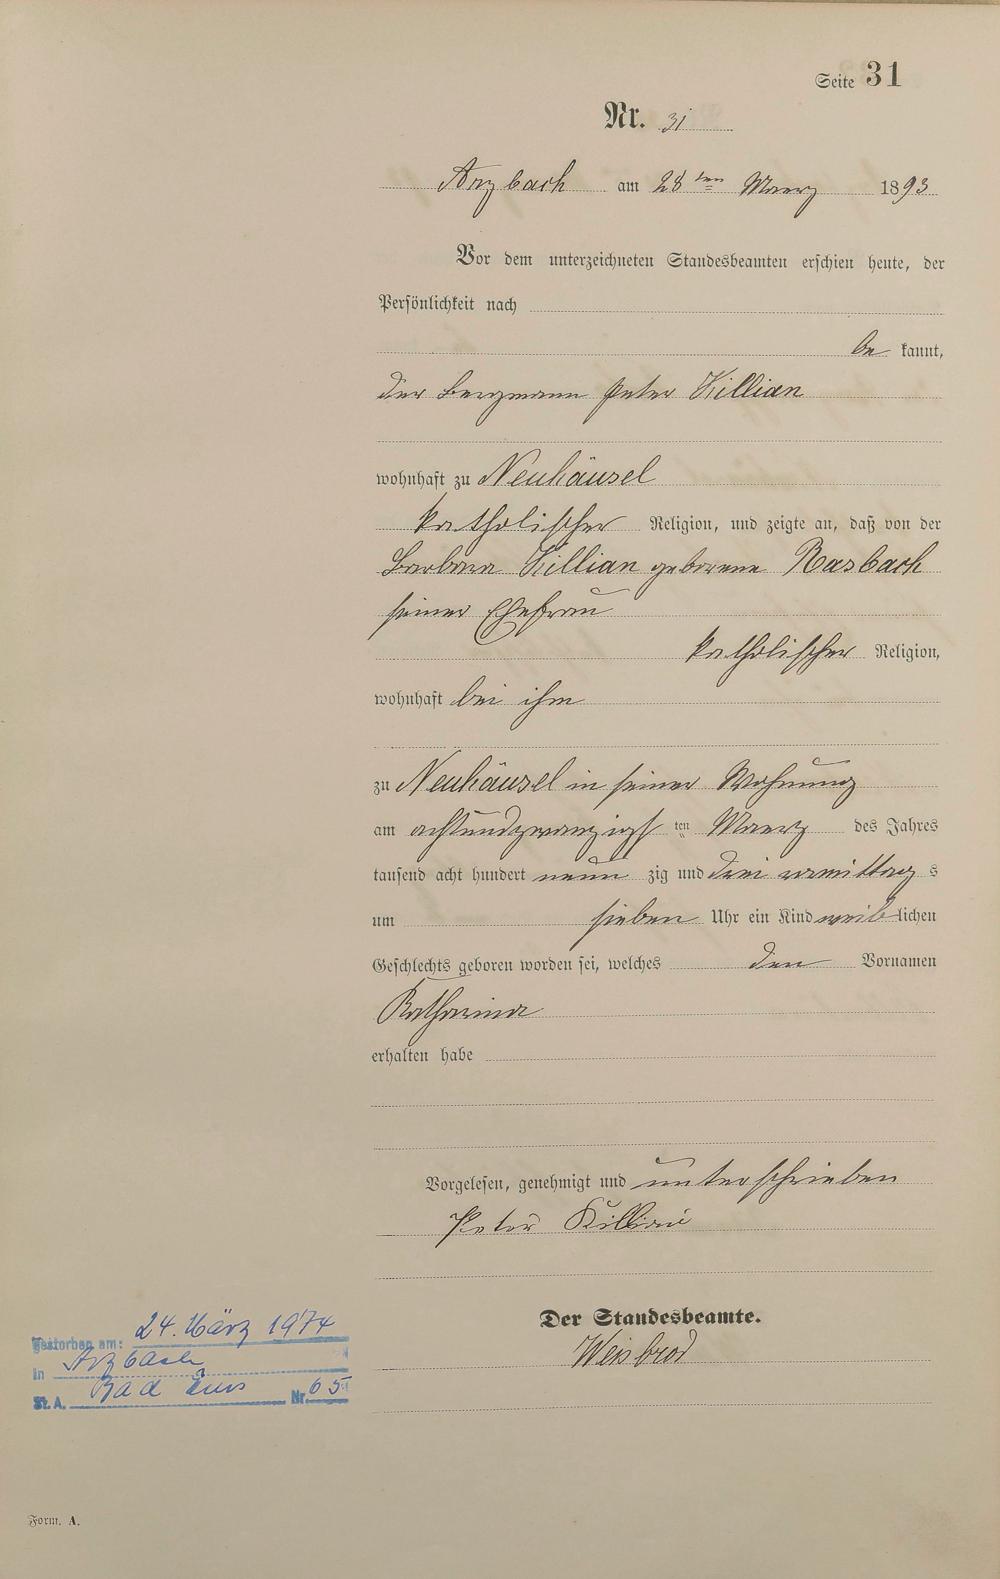 Seite 31
Nr. 31
Arzbach am 28ten Maerz 1893
Vor dem unterzeichneten Standesbeamten erschien heute, der
Persönlichkeit nach
be kannt,
der Bergmann Peter Killian
wohnhaft zu Neuhäusel
katholischer Religion, und zeigte an, daß von der
Barbara Killian geborene Rasbach
seiner Ehefrau
katholischer Religion,
wohnhaft bei ihm
zu Neuhäusel in seiner Wohnung
am achtundzwanzigst ten Maerz des Jahres
tausend acht hundert neun zig und drei vormittag s
um sieben Uhr ein Kind weib lichen
Geschlechts geboren worden sei, welches den Vornamen
Katharina
erhalten habe
Vorgelesen, genehmigt und unterschrieben
Peter Killian
Der Standesbeamte.
Weisbrod
Gestorben am: 24. März 1974
in Arzbach
St. A. Bad Ems Nr. 65
Form. A.